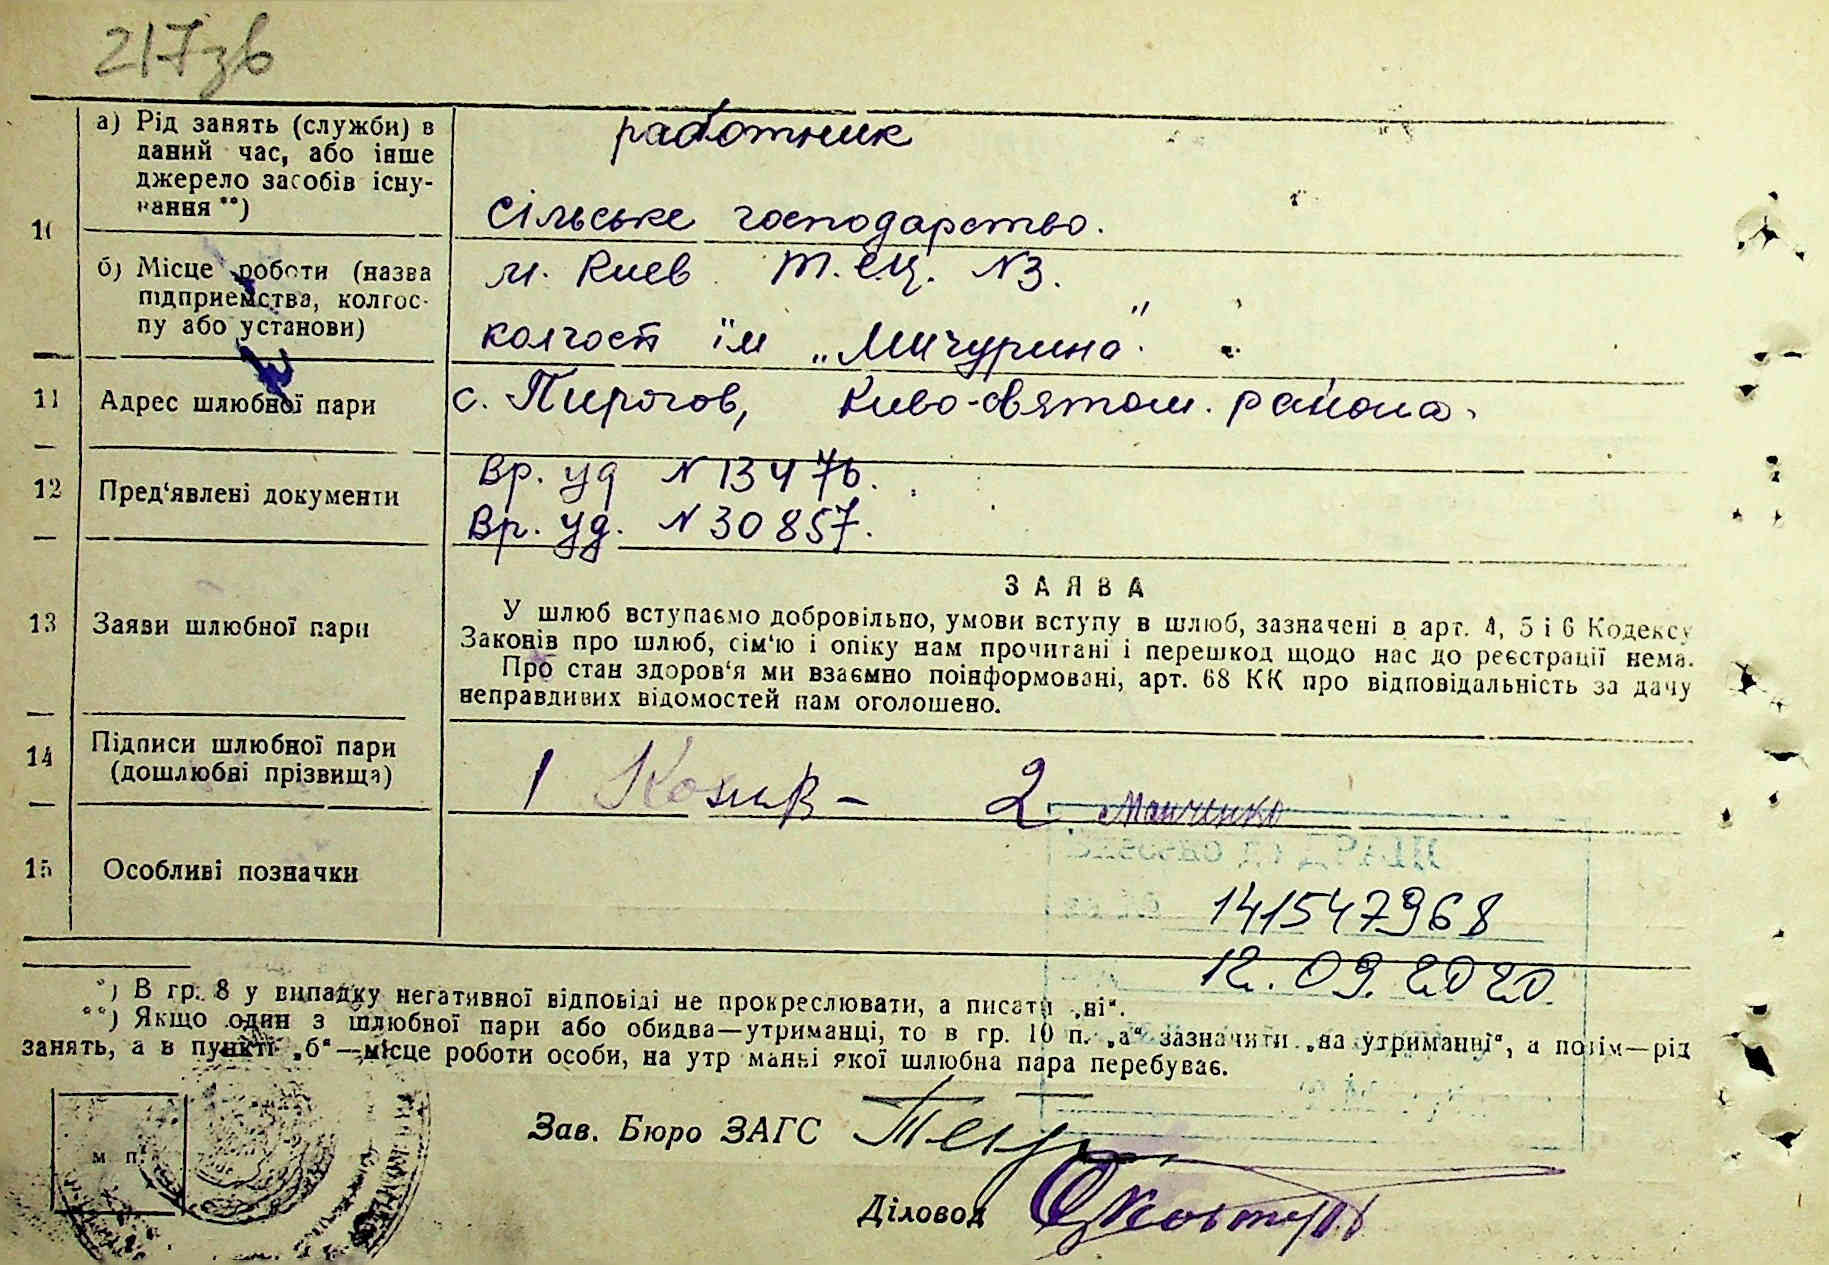 217зв
а) Рід занять (служби) в
даний час, або інше
джерело засобів існу-
вання **)
работник
сільське господарство.
10
б) Місце роботи (назва
підприємства, колгос-
пу або установи)
м. Киев т.е.ц. N3.
колгосп їм „Мичурина"
11 Адрес шлюбної пари
с. Пирогов, Киво-святош. района.
12 Пред'явлені документи
Вр. уд N 13476.
Вр. уд. N 30857.
13 Заяви шлюбної пари
ЗАЯВА
У шлюб вступаємо добровільно, умови вступу в шлюб, зазначені в арт. 4, 5 і 6 Кодексу
Законів про шлюб, сім'ю і опіку нам прочитані і перешкод щодо нас до реєстрації нема.
Про стан здоров'я ми взаємно поінформовані, арт. 68 КК про відповідальність за дачу
неправдивих відомостей нам оголошено.
14 Підписи шлюбної пари
(дошлюбні прізвища)
1 2 Манченко
15 Особливі позначки
141547968
12.09.2020
*) В гр. 8 у випадку негативної відповіді не прокреслювати, а писати „ні“.
**) Якщо один з шлюбної пари або обидва—утриманці, то в гр. 10 п. „а“ зазначити „на утриманні“, а потім—рід
занять, а в пункті „б“—місце роботи особи, на утр манні якої шлюбна пара перебуває.
м п.
Зав. Бюро ЗАГС
Діловод